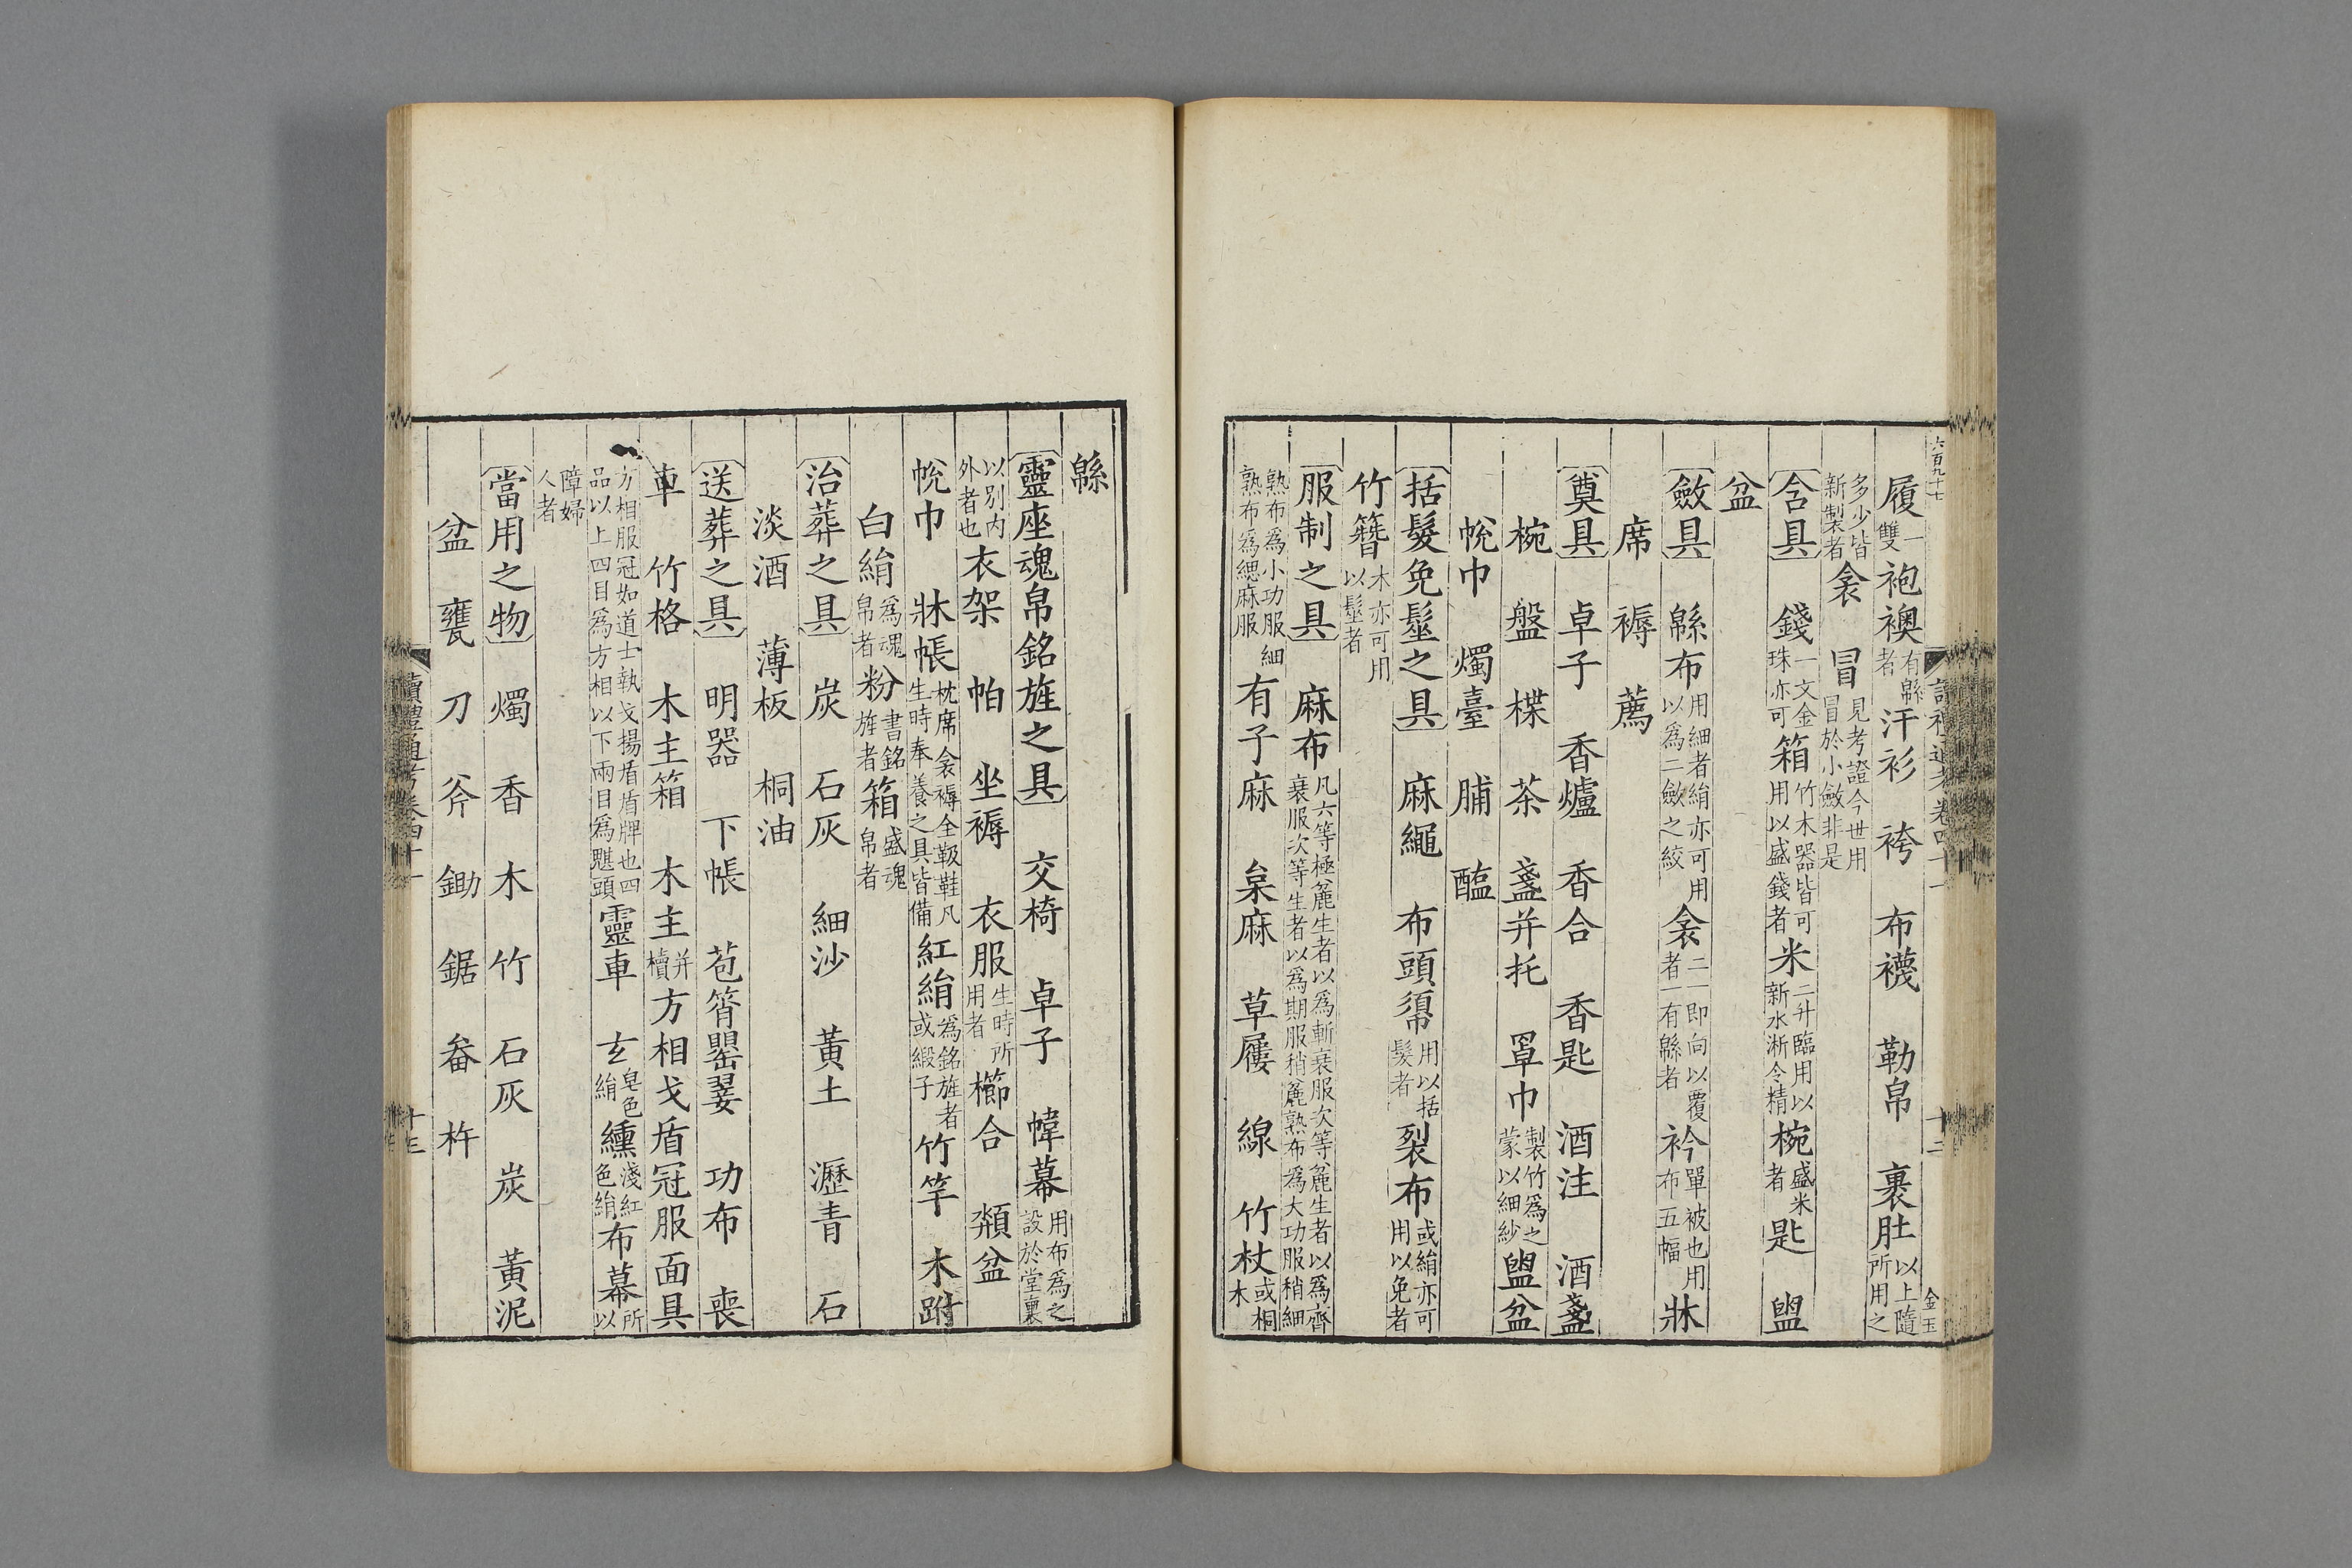 六百九十七
讀禮通考卷四十一
十二
金玉
履一雙 袍襖有緜者 汗衫 袴 布襪 勒帛 裹肚以上隨所用之
多少皆新製者 衾 冒見考證今世用冒於小斂非是
含具 錢一文金珠亦可 箱竹木器皆可用以盛錢者 米二升臨用以新水淅令精 椀盛米者 匙 盥
盆
斂具 緜布用細者絹亦可用以爲二斂之絞 衾二一即向以覆者一有緜者 衿單被也用布五幅 牀
席 褥 薦
奠具 卓子 香爐 香合 香匙 酒注 酒盞
椀 盤 楪 茶 盞并托 罩巾製竹爲之蒙以細紗 盥盆
帨巾 燭臺 脯 醢
括髮免髽之具 麻繩 布頭𢄼用以括髮者 裂布或絹亦可用以免者
竹簪木亦可用以髽者
服制之具 麻布凡六等極麄生者以爲斬衰服次等麄生者以爲齊衰服次等生者以爲期服稍麄熟布爲大功服稍細
熟布爲小功服細熟布爲緦麻服 有子麻 枲麻 草屨 線 竹杖或桐木
緜
靈座魂帛銘旌之具 交椅 卓子 幃幕用布爲之設於堂裏
以别内外者也 衣架 帕 坐褥 衣服生時所用者 櫛合 頮盆
帨巾 牀帳枕席衾褥全靸鞋凡生時奉養之具皆備 紅絹爲銘旌者或緞子 竹竿 木跗
白絹爲魂帛者 粉書銘旌者 箱盛魂帛者
治葬之具 炭 石灰 細沙 黃土 瀝青 石
淡酒 薄板 桐油
送葬之具 明器 下帳 苞筲罌翣 功布 喪
車 竹格 木主箱 木主并櫝 方相戈盾冠服面具
方相服冠如道士執戈揚盾盾牌也四品以上四目爲方相以下兩目爲魌頭 靈車 玄皂色絹 纁淺紅色絹 布幕所以
障婦人者
當用之物 燭 香 木 竹 石灰 炭 黃泥
盆 甕 刀 斧 鋤 鋸 畚 杵
讀禮通考卷四十一
十三